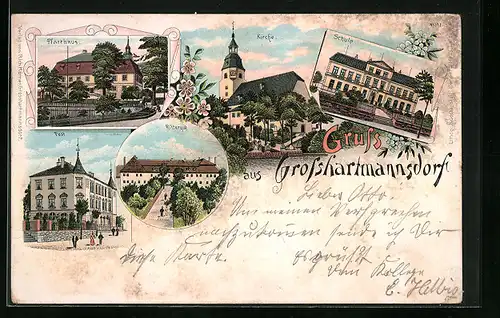 Pfarrhaus
Kirche
Schule
Post
Rittergut
Gruss
aus Grosshartmannsdorf
Lieber Otto.
Um meinen Versprechen
nachzukommen sende ich Dir
diese Karte. Es grüßt
Dein Kollege
E. Helbig